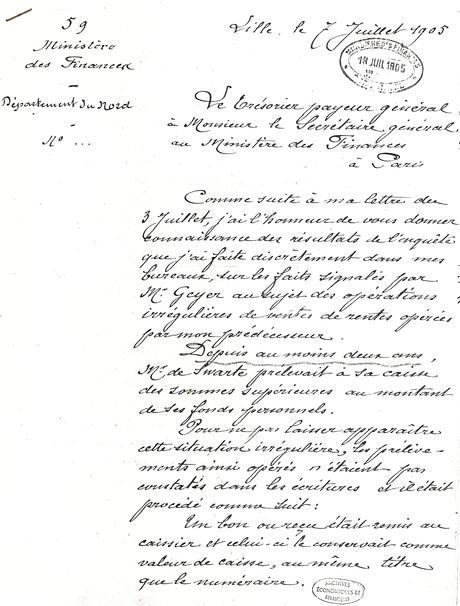 59
Ministère
des Finances
Département du Nord
No ...
Lille, le 7 Juillet 1905
18 JUIL 1905
Le Trésorier payeur général
à Monsieur le Secrétaire général
au Ministère des Finances
à Paris
Comme suite à ma lettre du
3 Juillet, j'ai l'honneur de vous donner
connaissance des résultats de l'enquête
que j'ai faite discrètement dans mes
bureaux, sur les faits signalés par
Mr Geyer au sujet des opérations
irrégulières de ventes de rentes opérées
par mon prédécesseur.
Depuis au moins deux ans,
Mr de Swarte prélevait à sa caisse
des sommes supérieures au montant
de ses fonds personnels.
Pour ne pas laisser apparaître
cette situation irrégulière, les prélève-
ments ainsi opérés n'étaient pas
constatés dans les écritures et il était
procédé comme suit :
Un bon ou reçu était remis au
caissier et celui-ci le conservait comme
valeur de caisse, au même titre
que le numéraire.
ARCHIVES
ECONOMIQUES ET
FINANCIERES